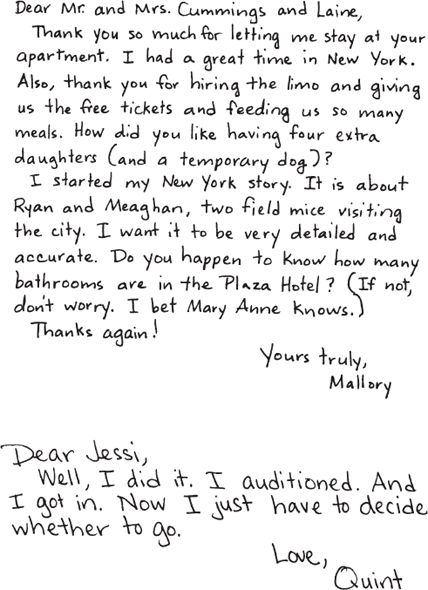 Dear Mr. and Mrs. Cummings and Laine,
Thank you so much for letting me stay at your
apartment. I had a great time in New York.
Also, thank you for hiring the limo and giving
us the free tickets and feeding us so many
meals. How did you like having four extra
daughters (and a temporary dog)?
I started my New York story. It is about
Ryan and Meaghan, two field mice visiting
the city. I want it to be very detailed and
accurate. Do you happen to know how many
bathrooms are in the Plaza Hotel? (If not,
don't worry. I bet Mary Anne knows.)
Thanks again!
Yours truly,
Mallory
Dear Jessi,
Well, I did it. I auditioned. And
I got in. Now I just have to decide
whether to go.
Love,
Quint